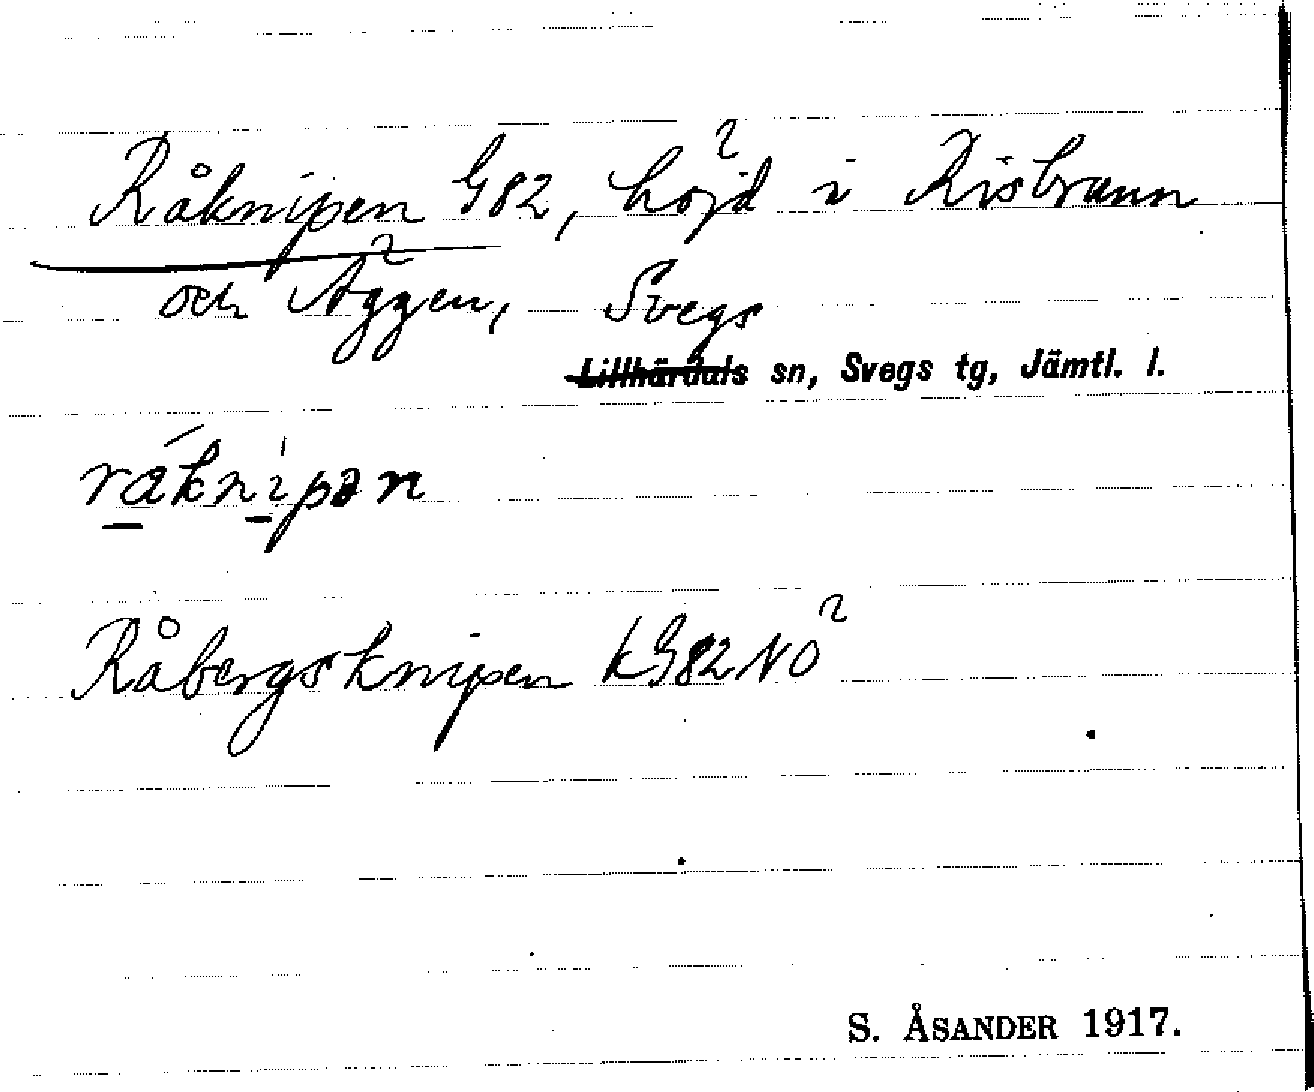 Råknipen G82, höjd i Risbrunn
och Äggen, Svegs
Lillhärdals sn, Svegs tg, Jämtl. l.
råknipən
Råbergsknipen kG82NÖ
S. ÅSANDER 1917.